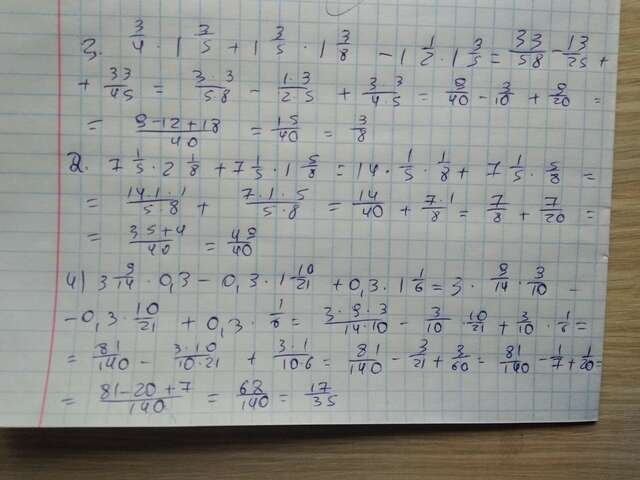 3. 3/4 · 1 3/5 + 1 3/5 · 1 3/8 - 1 1/2 · 1 3/5 = 33/58 - 13/25 +
+ 33/45 = 3·3/5·8 - 1·3/2·5 + 3·3/4·5 = 9/40 - 3/10 + 9/20 =
= 9-12+18/40 = 15/40 = 3/8
2. 7 1/5 · 2 1/8 + 7 1/5 · 1 5/8 = 14 · 1/5 · 1/8 + 7 1/5 · 5/8 =
= 14·1·1/5·8 + 7·1·5/5·8 = 14/40 + 7·1/8 = 7/8 + 7/20 =
= 35+4/40 = 49/40
4) 3 9/14 · 0,3 - 0,3 · 1 10/21 + 0,3 · 1 1/6 = 3 · 9/14 · 3/10 -
- 0,3 · 10/21 + 0,3 · 1/6 = 3·9·3/14·10 - 3/10 · 10/21 + 3/10 · 1/6 =
= 81/140 - 3·10/10·21 + 3·1/10·6 = 81/140 - 3/21 + 3/60 = 81/140 - 1/7 + 1/20 =
= 81-20+7/140 = 68/140 = 17/35